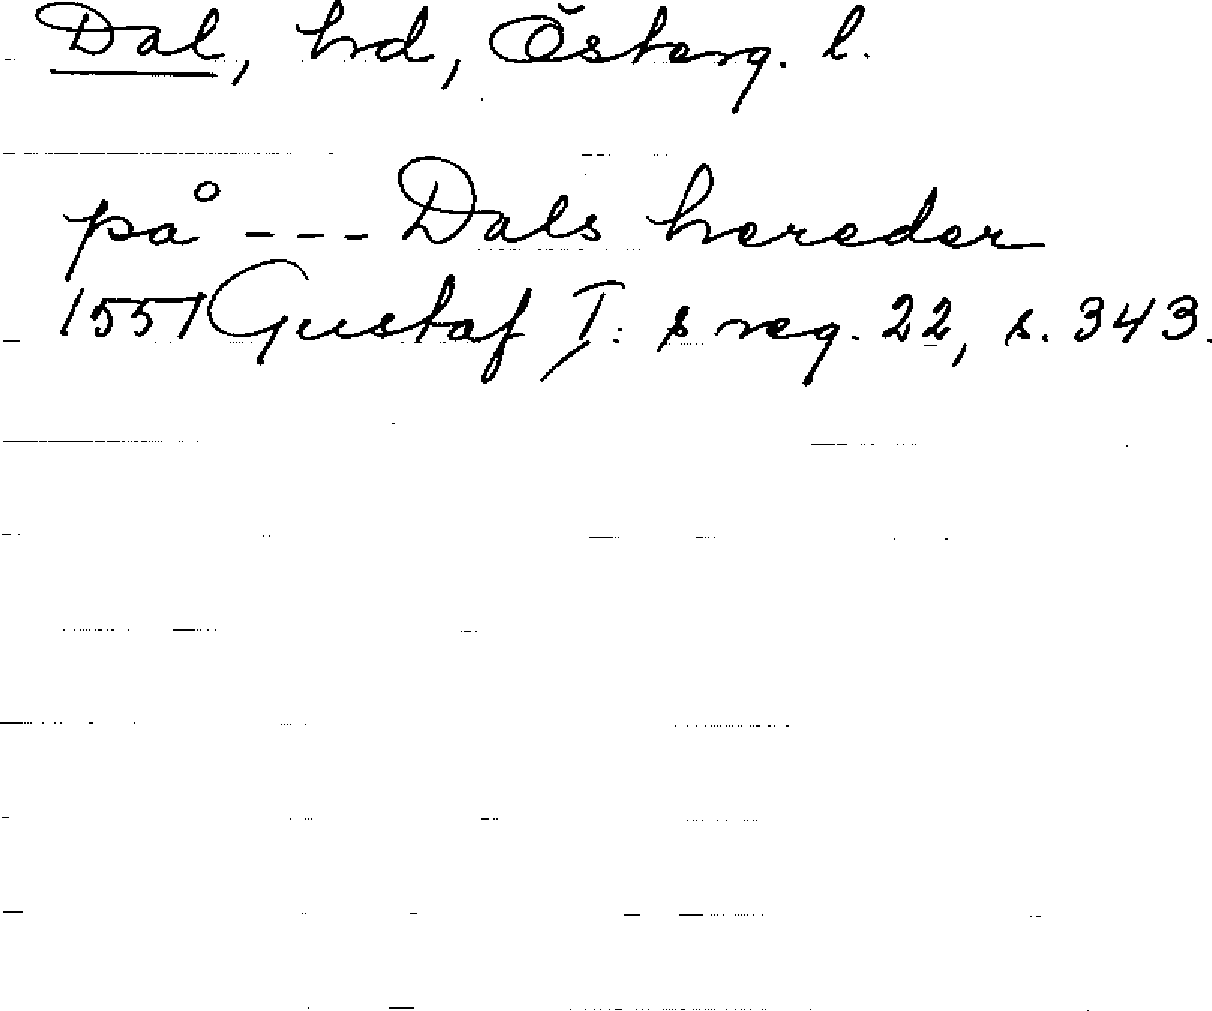 Dal, hd, Österg. l.
på --- Dals hereder
1551 Gustaf I: s reg. 22, s. 343.